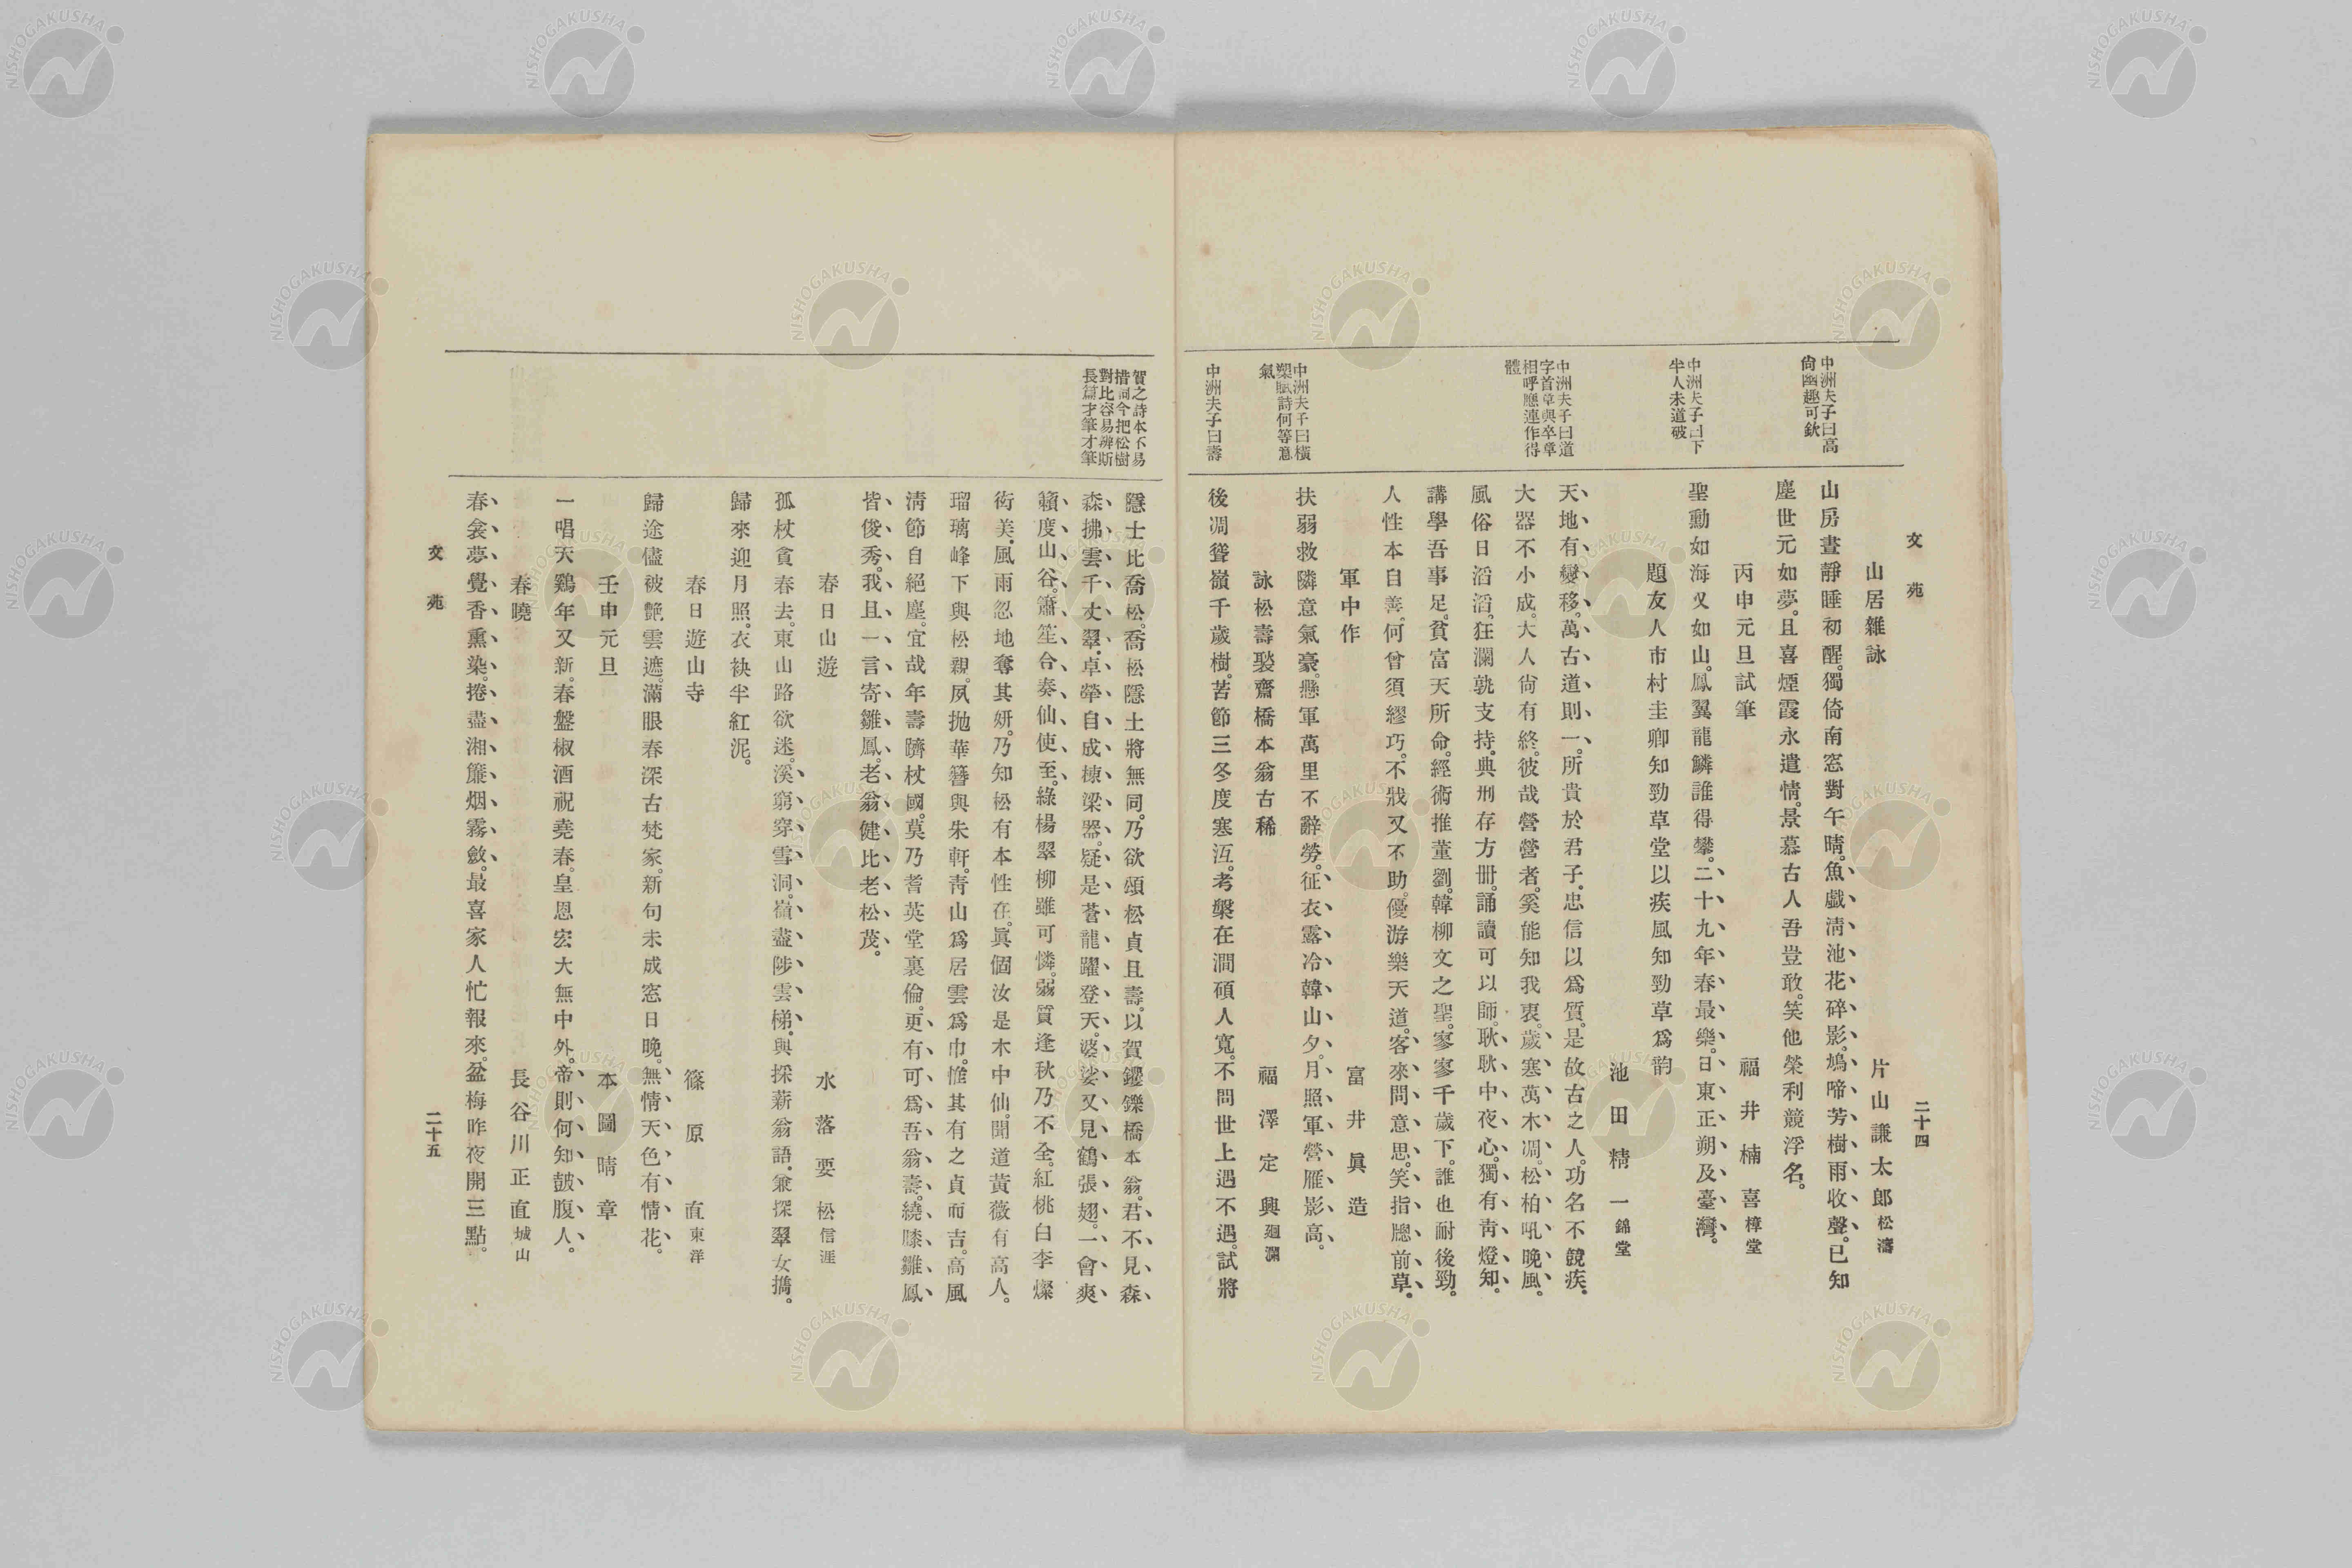 文苑
二十四
中洲夫子曰高
尙幽趣可欽
中洲夫子曰下
半人未道破
中洲夫子曰道
字首章與卒章
相呼應連作得
體
中洲夫子曰橫
槊賦詩何等意
氣
中洲夫子曰壽
山居雜詠
片山謙太郎松濤
山房晝靜睡初醒。獨倚南窓對午晴。魚戲淸池花碎影。鳩啼芳樹雨收聲。已知
塵世元如夢。且喜煙霞永遣情。景慕古人吾豈敢。笑他榮利競浮名。
丙申元旦試筆
福井楠喜樟堂
聖勳如海又如山。鳳翼龍鱗誰得攀。二十九年春最樂。日東正朔及臺灣。
題友人市村圭卿知勁草堂以疾風知勁草爲韵
池田精一錦堂
天地有變移。萬古道則一。所貴於君子。忠信以爲質。是故古之人。功名不競疾。
大器不小成。大人尙有終。彼哉營營者。奚能知我衷。歲寒萬木凋。松柏吼晩風。
風俗日滔滔。狂瀾孰支持。典刑存方册。誦讀可以師。耿耿中夜心。獨有靑燈知。
講學吾事足。貧富天所命。經術推董劉。韓柳文之聖。寥寥千歲下。誰也耐後勁。
人性本自善。何曾須繆巧。不戕又不助。優游樂天道。客來問意思。笑指牕前草。
軍中作
富井眞造
扶弱救隣意氣豪。懸軍萬里不辭勞。征衣露冷韓山夕。月照軍營雁影高。
詠松壽褧齋橋本翁古稀
福澤定興廻瀾
後凋聳嶺千歲樹。苦節三冬度寒沍。考槃在澗碩人寬。不問世上遇不遇。試將
賀之詩本不易
措詞今把松樹
對比容易辨斯
長篇才筆才筆
隱士比喬松。喬松隱士將無同。乃欲頌松貞且壽。以賀钁鑠橋本翁。君不見森
森拂雲千丈翠。卓犖自成棟梁器。疑是蒼龍躍登天。婆娑又見鶴張翅。一會爽
籟度山谷。簫笙合奏仙使至。綠楊翠柳雖可憐。弱質逢秋乃不全。紅桃白李燦
衒美。風雨忽地奪其姸。乃知松有本性在。眞個汝是木中仙。聞道黃薇有高人。
瑠璃峰下與松親。夙抛華簪與朱軒。靑山爲居雲爲巾。惟其有之貞而吉。高風
淸節自絕塵。宜哉年壽躋杖國。莫乃耆英堂裏倫。更有可爲吾翁壽。繞膝雛鳳
皆俊秀。我且一言寄雛鳳。老翁健比老松茂。
春日山遊
水落要松信涯
孤杖貪春去。東山路欲迷。溪窮穿雪洞。嶺盡陟雲梯。與採薪翁語。兼探翠女擕。
歸來迎月照。衣袂半紅泥。
春日遊山寺
篠原直東洋
歸途儘被艷雲遮。滿眼春深古梵家。新句未成窓日晚。無情天色有情花。
壬申元旦
本圖晴章
一唱天鷄年又新。春盤椒酒祝堯春。皇恩宏大無中外。帝則何知皷腹人。
春曉
長谷川正直城山
春衾夢覺香熏染。捲盡湘簾烟霧斂。最喜家人忙報來。盆梅昨夜開三點。
文苑
二十五